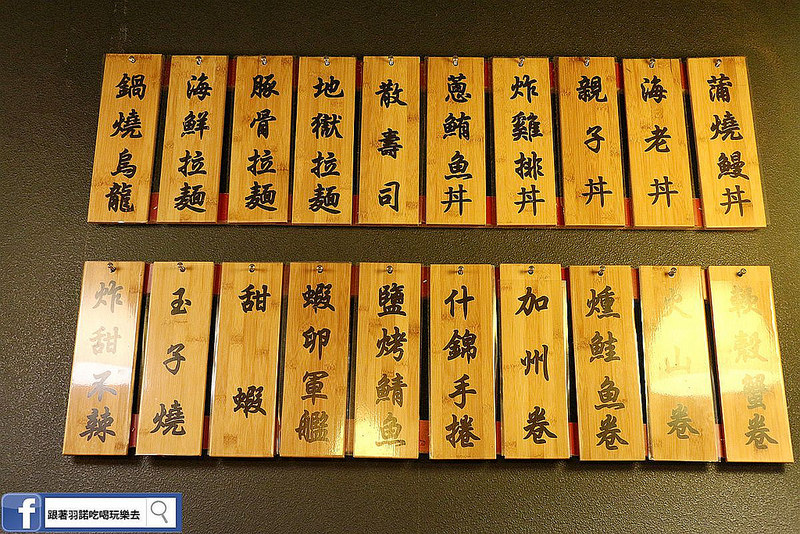 蒲燒鰻丼
海老丼
親子丼
炸雞排丼
蔥鮪魚丼
散壽司
地獄拉麵
豚骨拉麵
海鮮拉麵
鍋燒烏龍
軟殼蟹卷
火山卷
燻鮭魚卷
加州卷
什錦手捲
鹽烤鯖魚
蝦卵軍艦
甜蝦
玉子燒
炸甜不辣
跟著羽諾吃喝玩樂去